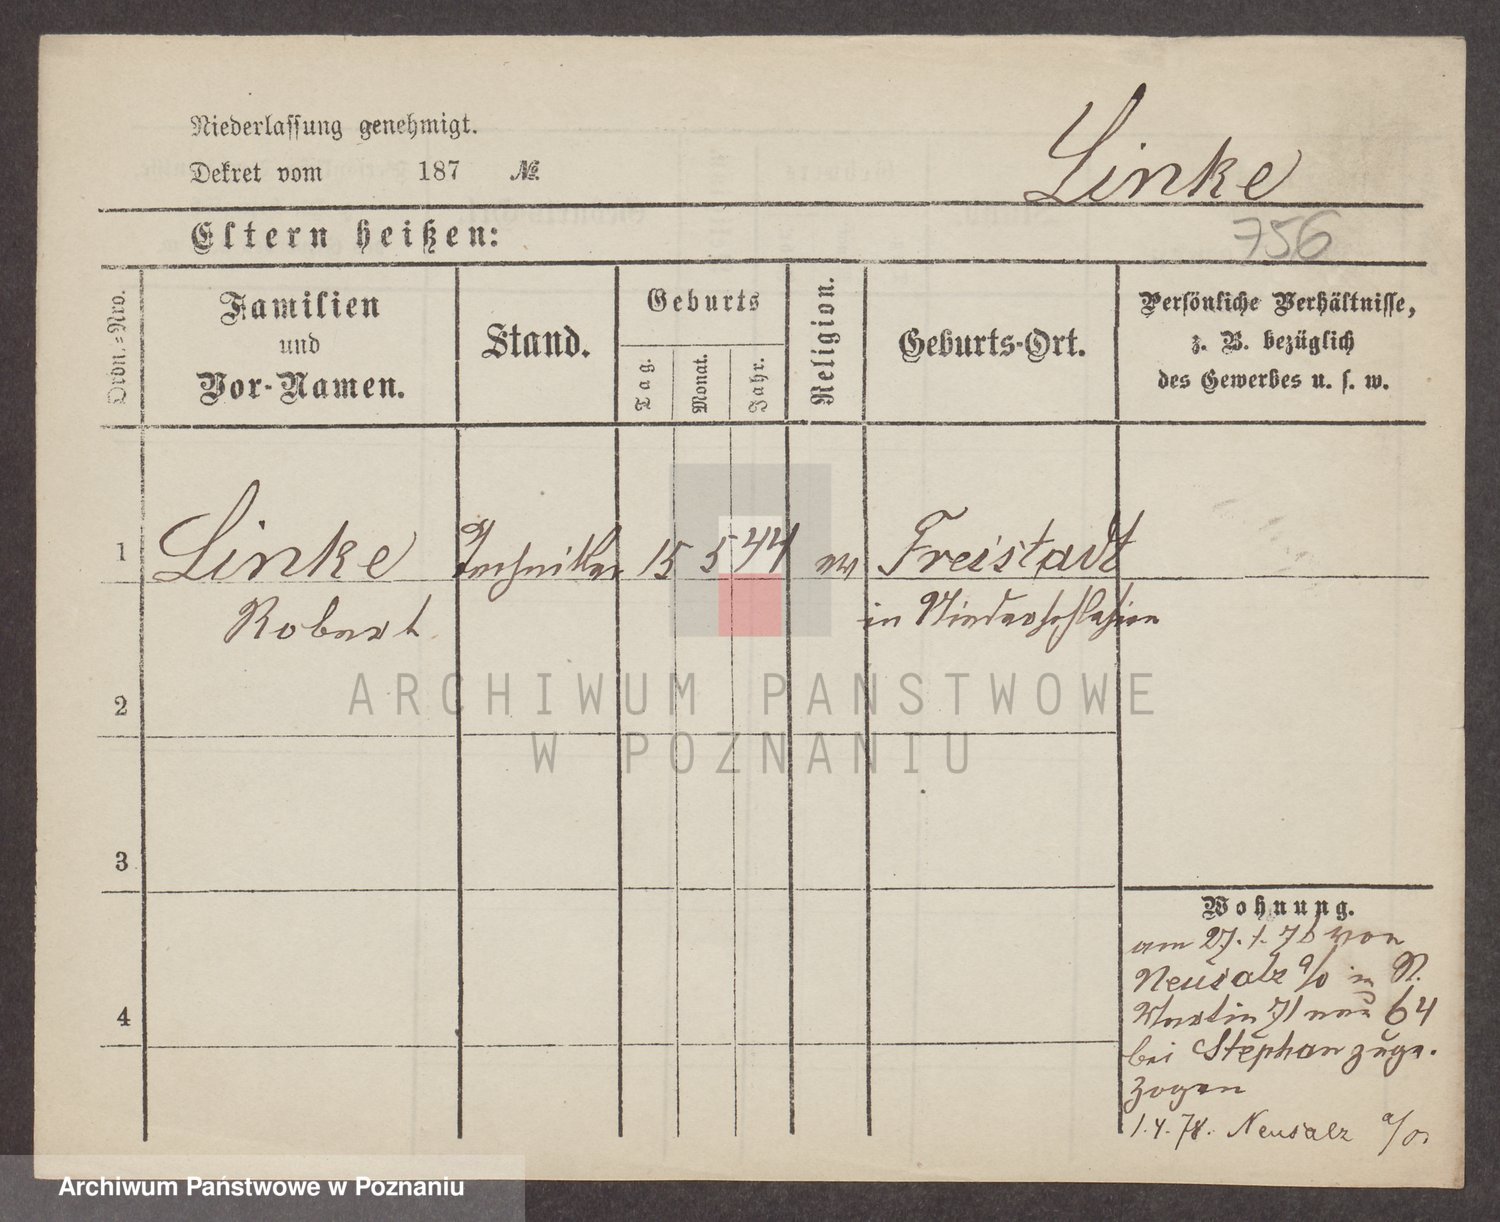 Niederlassung genehmigt.
Dekret vom 187 №
Linke
Eltern heißen:
756
Ordn.=Nro.
Familien
und
Vor-Namen.
Stand.
Geburts
Tag.
Monat.
Jahr.
Religion.
Geburts-Ort.
Persönliche Verhältnisse,
z. B. bezüglich
des Gewerbes u. s. w.
1 Linke Techniker 15 5 44 ev Freistadt
Robert in Niederschlesien
ARCHIWUM PAŃSTWOWE
W POZNANIU
2
3
4
Wohnung.
am 27. 1. 76 von
Neusalz a/o in St.
Martin 71 neu 64
bei Stephan zuge-
zogen
1.4.78. Neusalz a/o
Archiwum Państwowe w Poznaniu